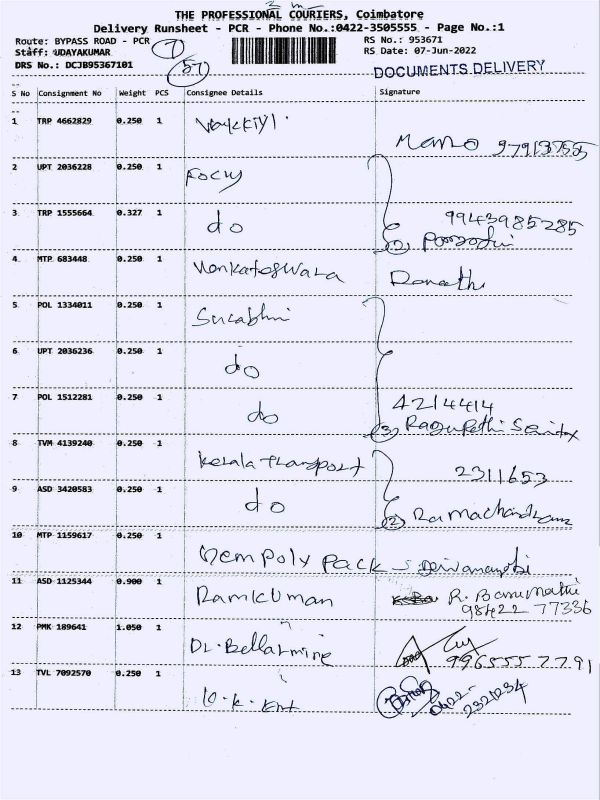 THE PROFESSIONAL COURIERS, Coimbatore
Delivery Runsheet - PCR - Phone No.:0422-3505555 - Page No.:1
Route: BYPASS ROAD - PCR
RS No.: 953671
Staff: UDAYAKUMAR
RS Date: 07-Jun-2022
DRS No.: DCJB95367101
57
DOCUMENTS DELIVERY
S No Consignment No Weight PCS Consignee Details Signature
1 TRP 4662829 0.250 1
Mano
2 UPT 2036228 0.250 1 Focus
3 TRP 1555664 0.327 1 do 9943985285
(2)
4 MTP 683448 0.250 1 Venkateswara
5 POL 1334011 0.250 1 Surabhi
6 UPT 2036236 0.250 1 do
7 POL 1512281 0.250 1 do 4214414
(3) Ragupathi
8 TVM 4139240 0.250 1 Kerala Transport 2311653
9 ASD 3420583 0.250 1 do (2) Ramachandran
10 MTP 1159617 0.250 1 Gem Poly Pack -
11 ASD 1125344 0.900 1 Ramkumar R. Banumathi
98422 77336
12 PMK 189641 1.050 1 Dr. Bellarmine
9965557791
13 TVL 7092570 0.250 1
0422-
2321234